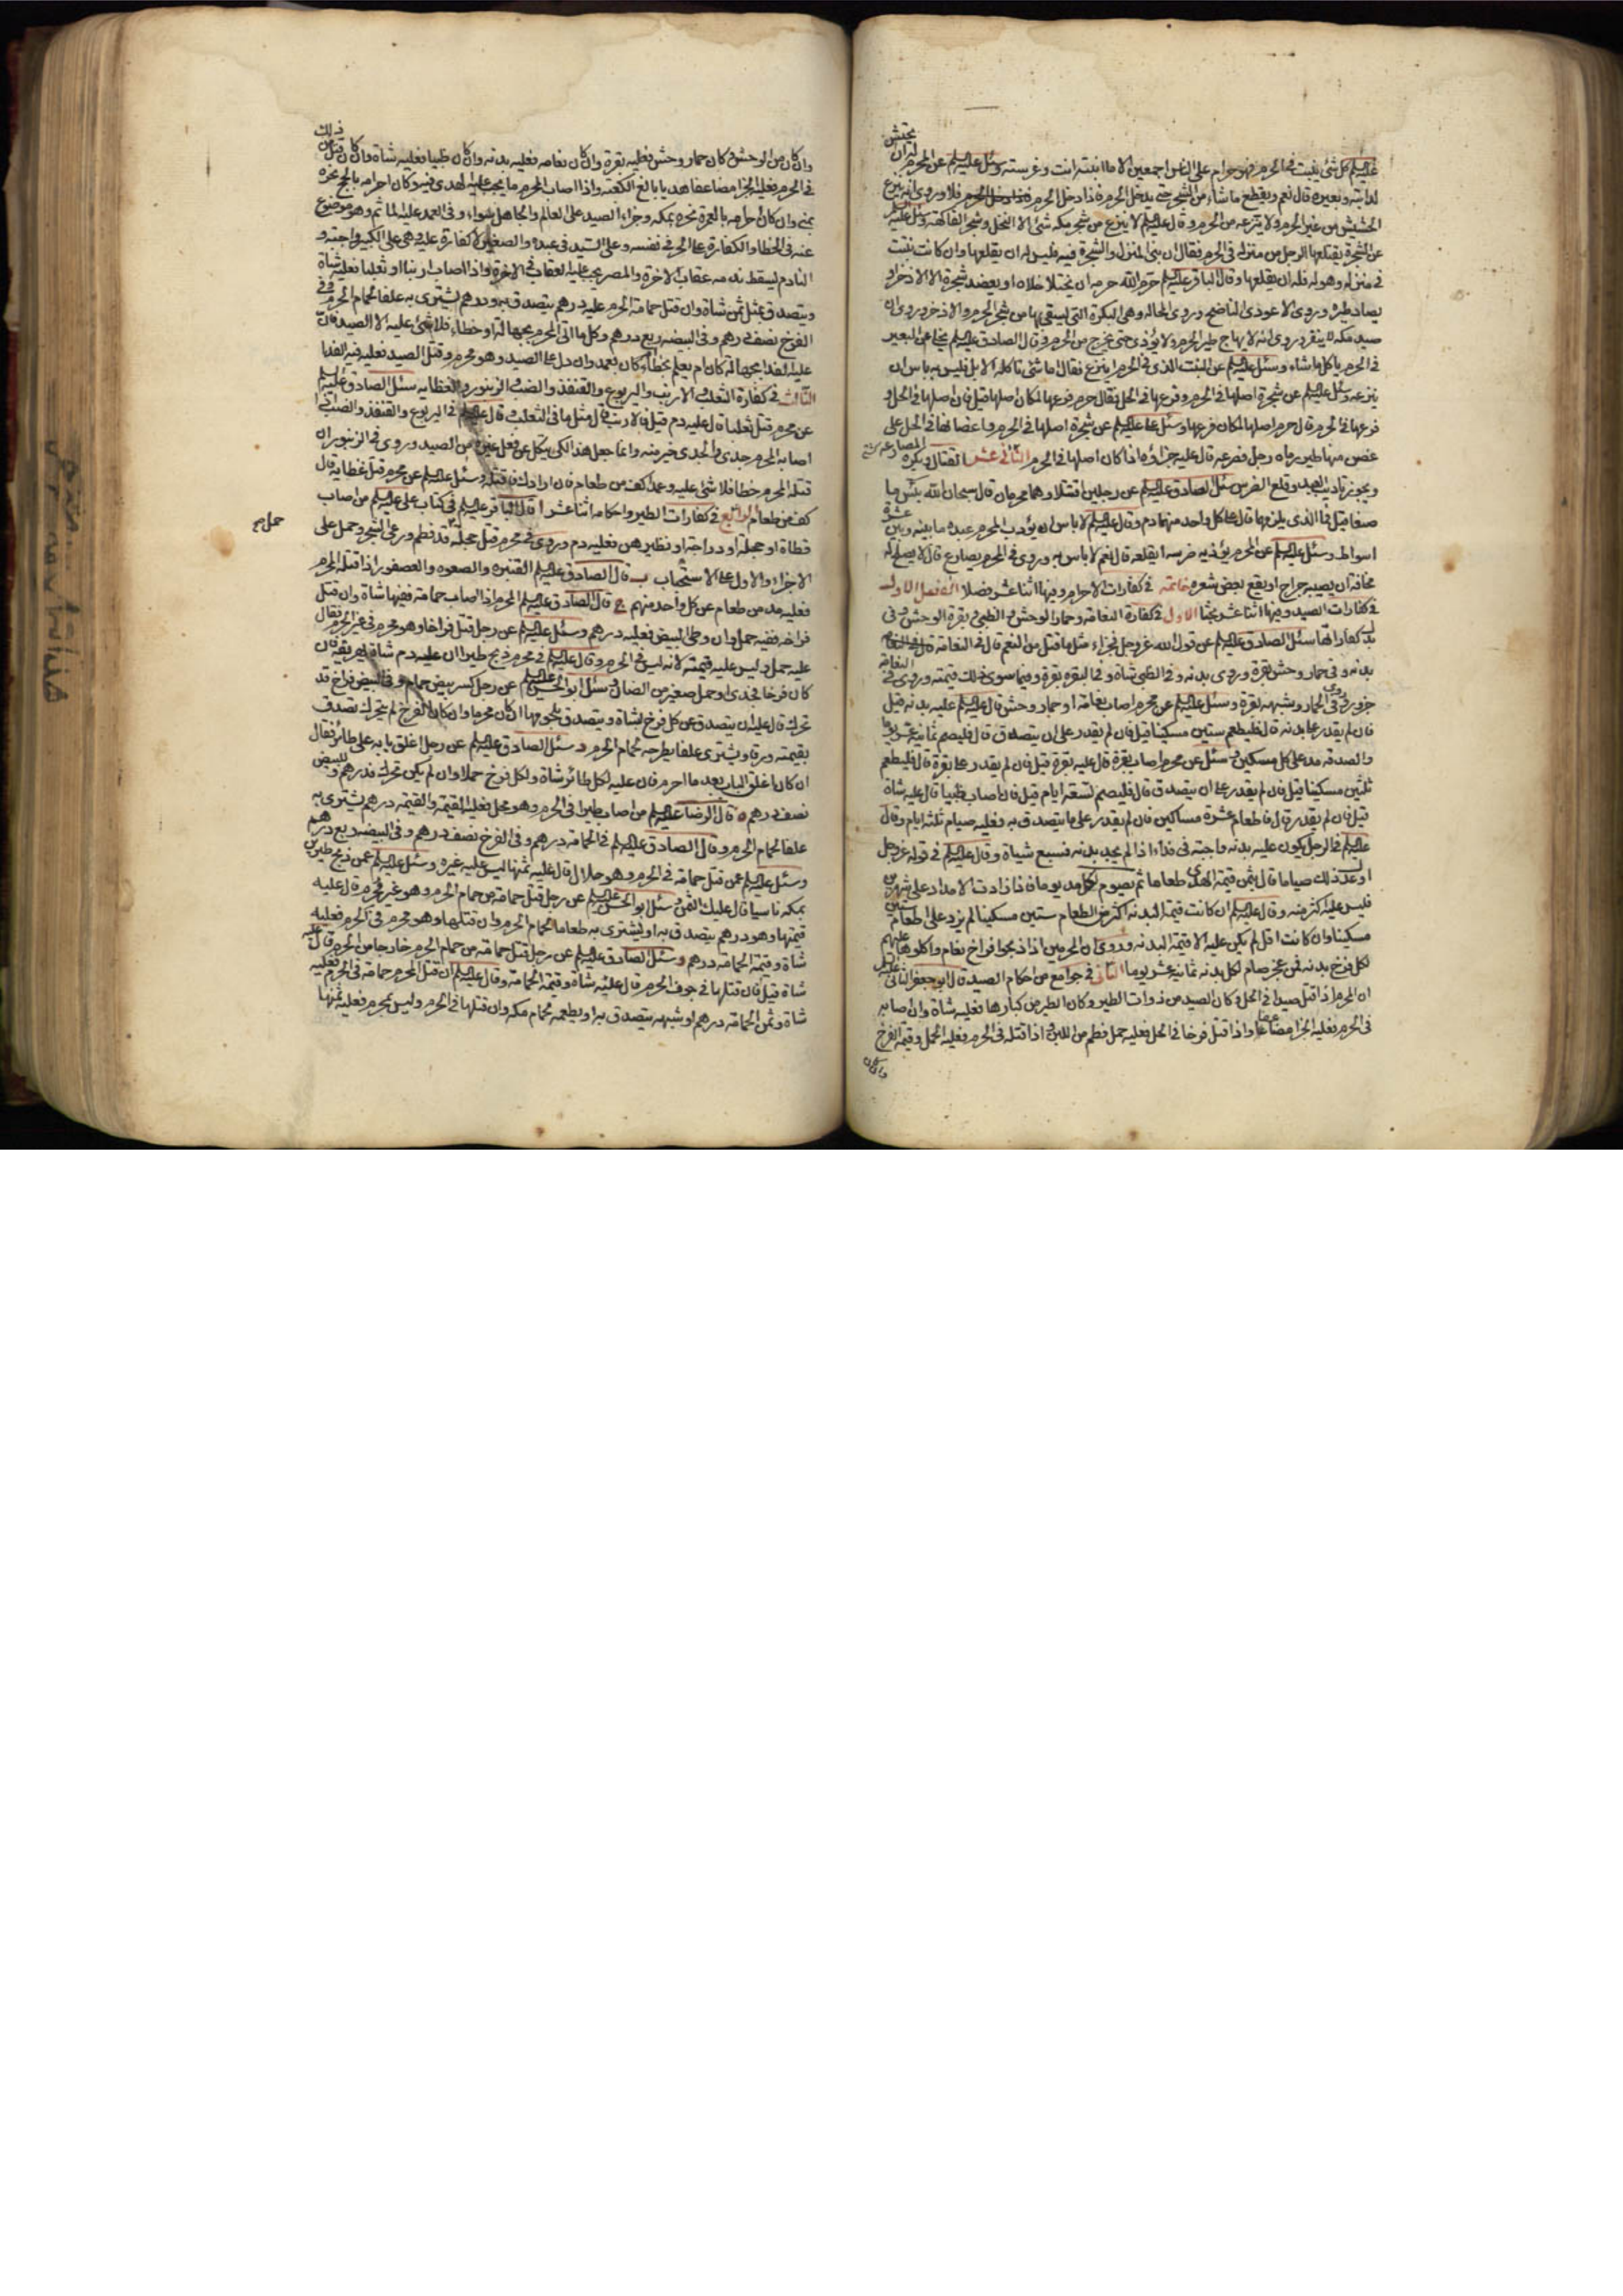 عليه السلام كل شئ ينبت في الحرم فهو حرام على الناس اجمعين الا ما انبته انت وغرسته وسئل عليه السلام عن المحرم يحتش
لدابته وبعيره قال نعم ويقطع ما شاء من الشجر حتى يدخل الحرم فاذا دخل الحرم فلا وروى
الحشيش من غير الحرم ولا ينزعه من الحرم وقال عليه السلام لا ينزع من شجر مكه شئ الا النخل وشجر الفاكهة وسئل عليه السلام
عن الشجرة يقتلعها الرجل من منزله في الحرم فقال ان بنى المنزل والشجرة فيه فليس له ان يقلعها وان كانت نبتت
في منزله وهو له فله ان يقلعها وقال الباقر عليه السلام حرم الله حرمه ان يختلا خلاه او يعضد شجرة الا الاذخر او
يصاد طيره وروى الا عودى الناضح وروى المحالة وهي البكرة التي يستقى بها من شجر الحرم والاذخر وروى ان
صيد مكه لا ينفر وروى انه لا يهاج طير الحرم ولا يؤذى حتى يخرج من الحرم وقال الصادق عليه السلام يخلى عن البعير
في الحرم ياكل ما شاء وسئل عليه السلام عن النبت الذي في الحرم اينزع فقال اما شئ تاكله الابل فليس به باس ان
ينزعه وسئل عليه السلام عن شجرة اصلها في الحرم وفرعها في الحل فقال حرم فرعها لمكان اصلها قيل فان اصلها في الحل و
فرعها في الحرم قال حرم اصلها لمكان فرعها وسئل على عليه السلام عن شجرة اصلها في الحرم واغصانها في الحل على
غصن منها طير رماه رجل فصرعه قال عليه جزاؤه اذا كان اصلها في الحرم الثاني عشر القتال فيكره المصارعة
ويجوز تاديب العبد وقلع الضرس سئل الصادق عليه السلام عن رجلين اقتتلا وهما محرمان قال سبحان الله بئس ما
صنعا قيل فما الذي يلزمهما قال على كل واحد منهما دم وقال عليه السلام لا باس ان يؤدب المحرم عبده ما بينه وبين عشرة
اسواط وسئل عليه السلام عن المحرم يؤذيه ضرسه ايقلعه قال نعم لا باس به وروى في المحرم يصارع قال لا يصلح له
مخافة ان يصيبه جراح او يقع بعض شعره خاتمة في كفارات الاحرام وفيها اثنا عشر فصلا الفصل الاول
في كفارات الصيد وفيها اثنا عشر بحثا الاول في كفارة النعامة وحمار الوحش والظبي وبقرة الوحش وفي
بدل كفاراتها سئل الصادق عليه السلام عن قول الله عز وجل فجزاء مثل ما قتل من النعم قال في النعامة
بدنه وفي حمار وحش بقرة وروى بدنه وفي الظبي شاة وفي البقرة بقرة وفيما سوى ذلك قيمته وروى في النعامة
جزور وفي الحمار وشبهه بقرة وسئل عليه السلام عن محرم اصاب نعامة او حمار وحش قال عليه السلام عليه بدنه قيل
فان لم يقدر على بدنه قال فليطعم ستين مسكينا قيل فان لم يقدر على ان يتصدق قال فليصم ثمانية عشر يوما
والصدقه مد على كل مسكين وسئل عن محرم اصاب بقرة قال عليه بقرة قيل فان لم يقدر على بقرة قال فليطعم
ثلثين مسكينا قيل فان لم يقدر على ان يتصدق قال فليصم تسعة ايام قيل فان اصاب ظبيا قال عليه شاة
قيل فان لم يقدر قال فاطعام عشرة مساكين فان لم يقدر على ما يتصدق به فعليه صيام ثلثه ايام وقال
عليه السلام في الرجل يكون عليه بدنه واجبته في فداء اذا لم يجد بدنه فسبع شياة وقال عليه السلام في قوله عز وجل
او عدل ذلك صياما قال يثمن قيمة الهدى طعاما ثم يصوم لكل مد يوما فاذا زادت الامداد على شهرين
فليس عليه اكثر منه وقال عليه السلام ان كانت قيمة البدنه اكثر من اطعام ستين مسكينا لم يزد على اطعام ستين
مسكينا وان كانت اقل لم يكن عليه الا قيمة البدنه وروى ان المحرمين اذا ذبحوا فراخ نعام واكلوها عليهم
لكل فرخ بدنه فمن عجز صام لكل بدنه ثمانيه عشر يوما الثاني في جوامع من احكام الصيد قال ابو جعفر الثاني عليه السلام
ان المحرم اذا قتل صيدا في الحل وكان الصيد من ذوات الطير وكان الطير من كبارها فعليه شاة وان اصابه
في الحرم فعليه الجزاء مضاعفا واذا قتل فرخا في الحل فعليه حمل فطم من اللبن واذا قتله في الحرم فعليه الحمل وقيمة الفرخ
وان كان
وان كان من الوحش وكان حمار وحش فعليه بقرة وان كان نعامه فعليه بدنه وان كان ظبيا فعليه شاة وان كان قتل من ذلك
في الحرم فعليه الجزا مضاعفا هديا بالغ الكعبه واذا اصاب المحرم ما يجب عليه الهدى فيه وكان احرامه بالحج نحره
بمنى وان كان احرامه بالعمرة نحره بمكه وجزاء الصيد على العالم والجاهل سواء وفي العمد عليه الماثم وهو موضوع
عنه في الخطا والكفارة على الحر في نفسه وعلى السيد في عبده والصغير لا كفارة عليه وهي على الكبير واجبته و
النادم يسقط ندمه عقاب الاخرة والمصر يجب عليه العقاب في الاخرة واذا اصاب ارنبا او ثعلبا فعليه شاة
ويتصدق بمثل ثمن شاة وان قتل حمامة الحرم عليه درهم يتصدق به ودرهم يشترى به علفا لحمام الحرم وفي
الفرخ نصف درهم وفي البيضه ربع درهم وكل ما اتى المحرم بجهالة او خطاء فلا شئ عليه الا الصيد فان
عليه الفدا بجهالة كان ام بعلم بخطاء كان ام بعمد وان دل على الصيد وهو محرم وقتل الصيد فعليه فيه الفدا
الثالث في كفارة الثعلب والارنب واليربوع والقنفذ والضب والزنبور والعظايه سئل الصادق عليه السلام
عن محرم قتل ثعلبا قال عليه دم قيل فالارنب قال مثل ما في الثعلب وقال عليه السلام في اليربوع والقنفذ والضب اذا
اصابه المحرم جدى والجدى خير منه وانما جعل هذا لكى ينكل عن فعل غيره من الصيد وروى في الزنبور ان
قتله المحرم خطا فلا شئ عليه وعمدا كف من طعام فان ارادك فاقتله وسئل عليه السلام عن محرم قتل عظاية قال
كف من طعام الرابع في كفارات الطير واحكامه اثنا عشر ا قال الباقر عليه السلام في كتاب على عليه السلام من اصاب
قطاة او حجلة او دراجة او نظيرهن فعليه دم وروى في محرم قتل حجلة حمل قد فطم ورعى الشجر وحمل على
حمل صح
الاجزاء والاول على الاستحباب ب قال الصادق عليه السلام القنبره والصعوه والعصفور اذا قتله المحرم
فعليه مد من طعام عن كل واحد منهم ج قال الصادق عليه السلام المحرم اذا اصاب حمامة ففيها شاة وان قتل
فراخه ففيه حمل وان وطى البيض فعليه درهم وسئل عليه السلام عن رجل قتل فراخا وهو محرم في غير الحرم فقال
عليه حمل وليس عليه قيمته لانه ليس في الحرم وقال عليه السلام في محرم ذبح طيرا ان عليه دم شاة يهريقه فان
كان فرخا فجدى او حمل صغير من الضان وسئل ابو الحسن عليه السلام عن رجل كسر بيض حمام وفي البيض فراخ قد
تحرك قال عليه ان يتصدق عن كل فرخ بشاة ويتصدق بلحومها ان كان محرما وان كان الفرخ لم يتحرك تصدق
بقيمته ورقا ويشترى علفا يطرحه لحمام الحرم د سئل الصادق عليه السلام عن رجل اغلق بابه على طائر فقال
ان كان اغلق الباب بعد ما احرم فان عليه لكل طائر شاة ولكل فرخ حملا وان لم يكن تحرك فدرهم وللبيض
نصف درهم ه قال الرضا عليه السلام من اصاب طيرا في الحرم وهو محل فعليه القيمة والقيمة درهم يشترى به
علفا لحمام الحرم وقال الصادق عليه السلام في الحمامة درهم وفي الفرخ نصف درهم وفي البيضه ربع درهم
وسئل عليه السلام عمن قتل حمامة في الحرم وهو حلال قال عليه ثمنها ليس عليه غيره وسئل عليه السلام عمن ذبح طيرين
بمكه ناسيا قال عليك الثمن وسئل ابو الحسن عليه السلام عن رجل قتل حمامة من حمام الحرم وهو غير محرم قال عليه
قيمتها وهو درهم يتصدق به او يشترى به طعاما لحمام الحرم وان قتلها وهو محرم في الحرم فعليه
شاة وقيمة الحمامة درهم وسئل الصادق عليه السلام عن رجل قتل حمامة من حمام الحرم خارجا من الحرم قال عليه
شاة قيل فان قتلها في جوف الحرم قال عليه شاة وقيمة الحمامة وقال عليه السلام ان قتل المحرم حمامة في الحرم فعليه
شاة وثمن الحمامة درهم او شبهه يتصدق به او يطعمه حمام مكه وان قتلها في الحرم وليس بمحرم فعليه ثمنها